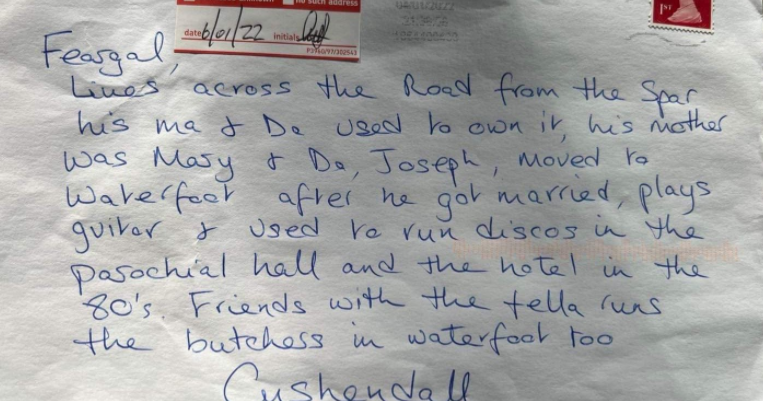 no such address
date 6/01/22 initials
P3960/97/302543
1ST
Feargal,
Lives across the Road from the Spar
his ma & Da used to own it, his mother
was Mary & Da, Joseph, moved to
Waterfoot after he got married, plays
guitar & used to run discos in the
parochial hall and the hotel in the
80's. Friends with the fella runs
the butchers in waterfoot too
Cushendall